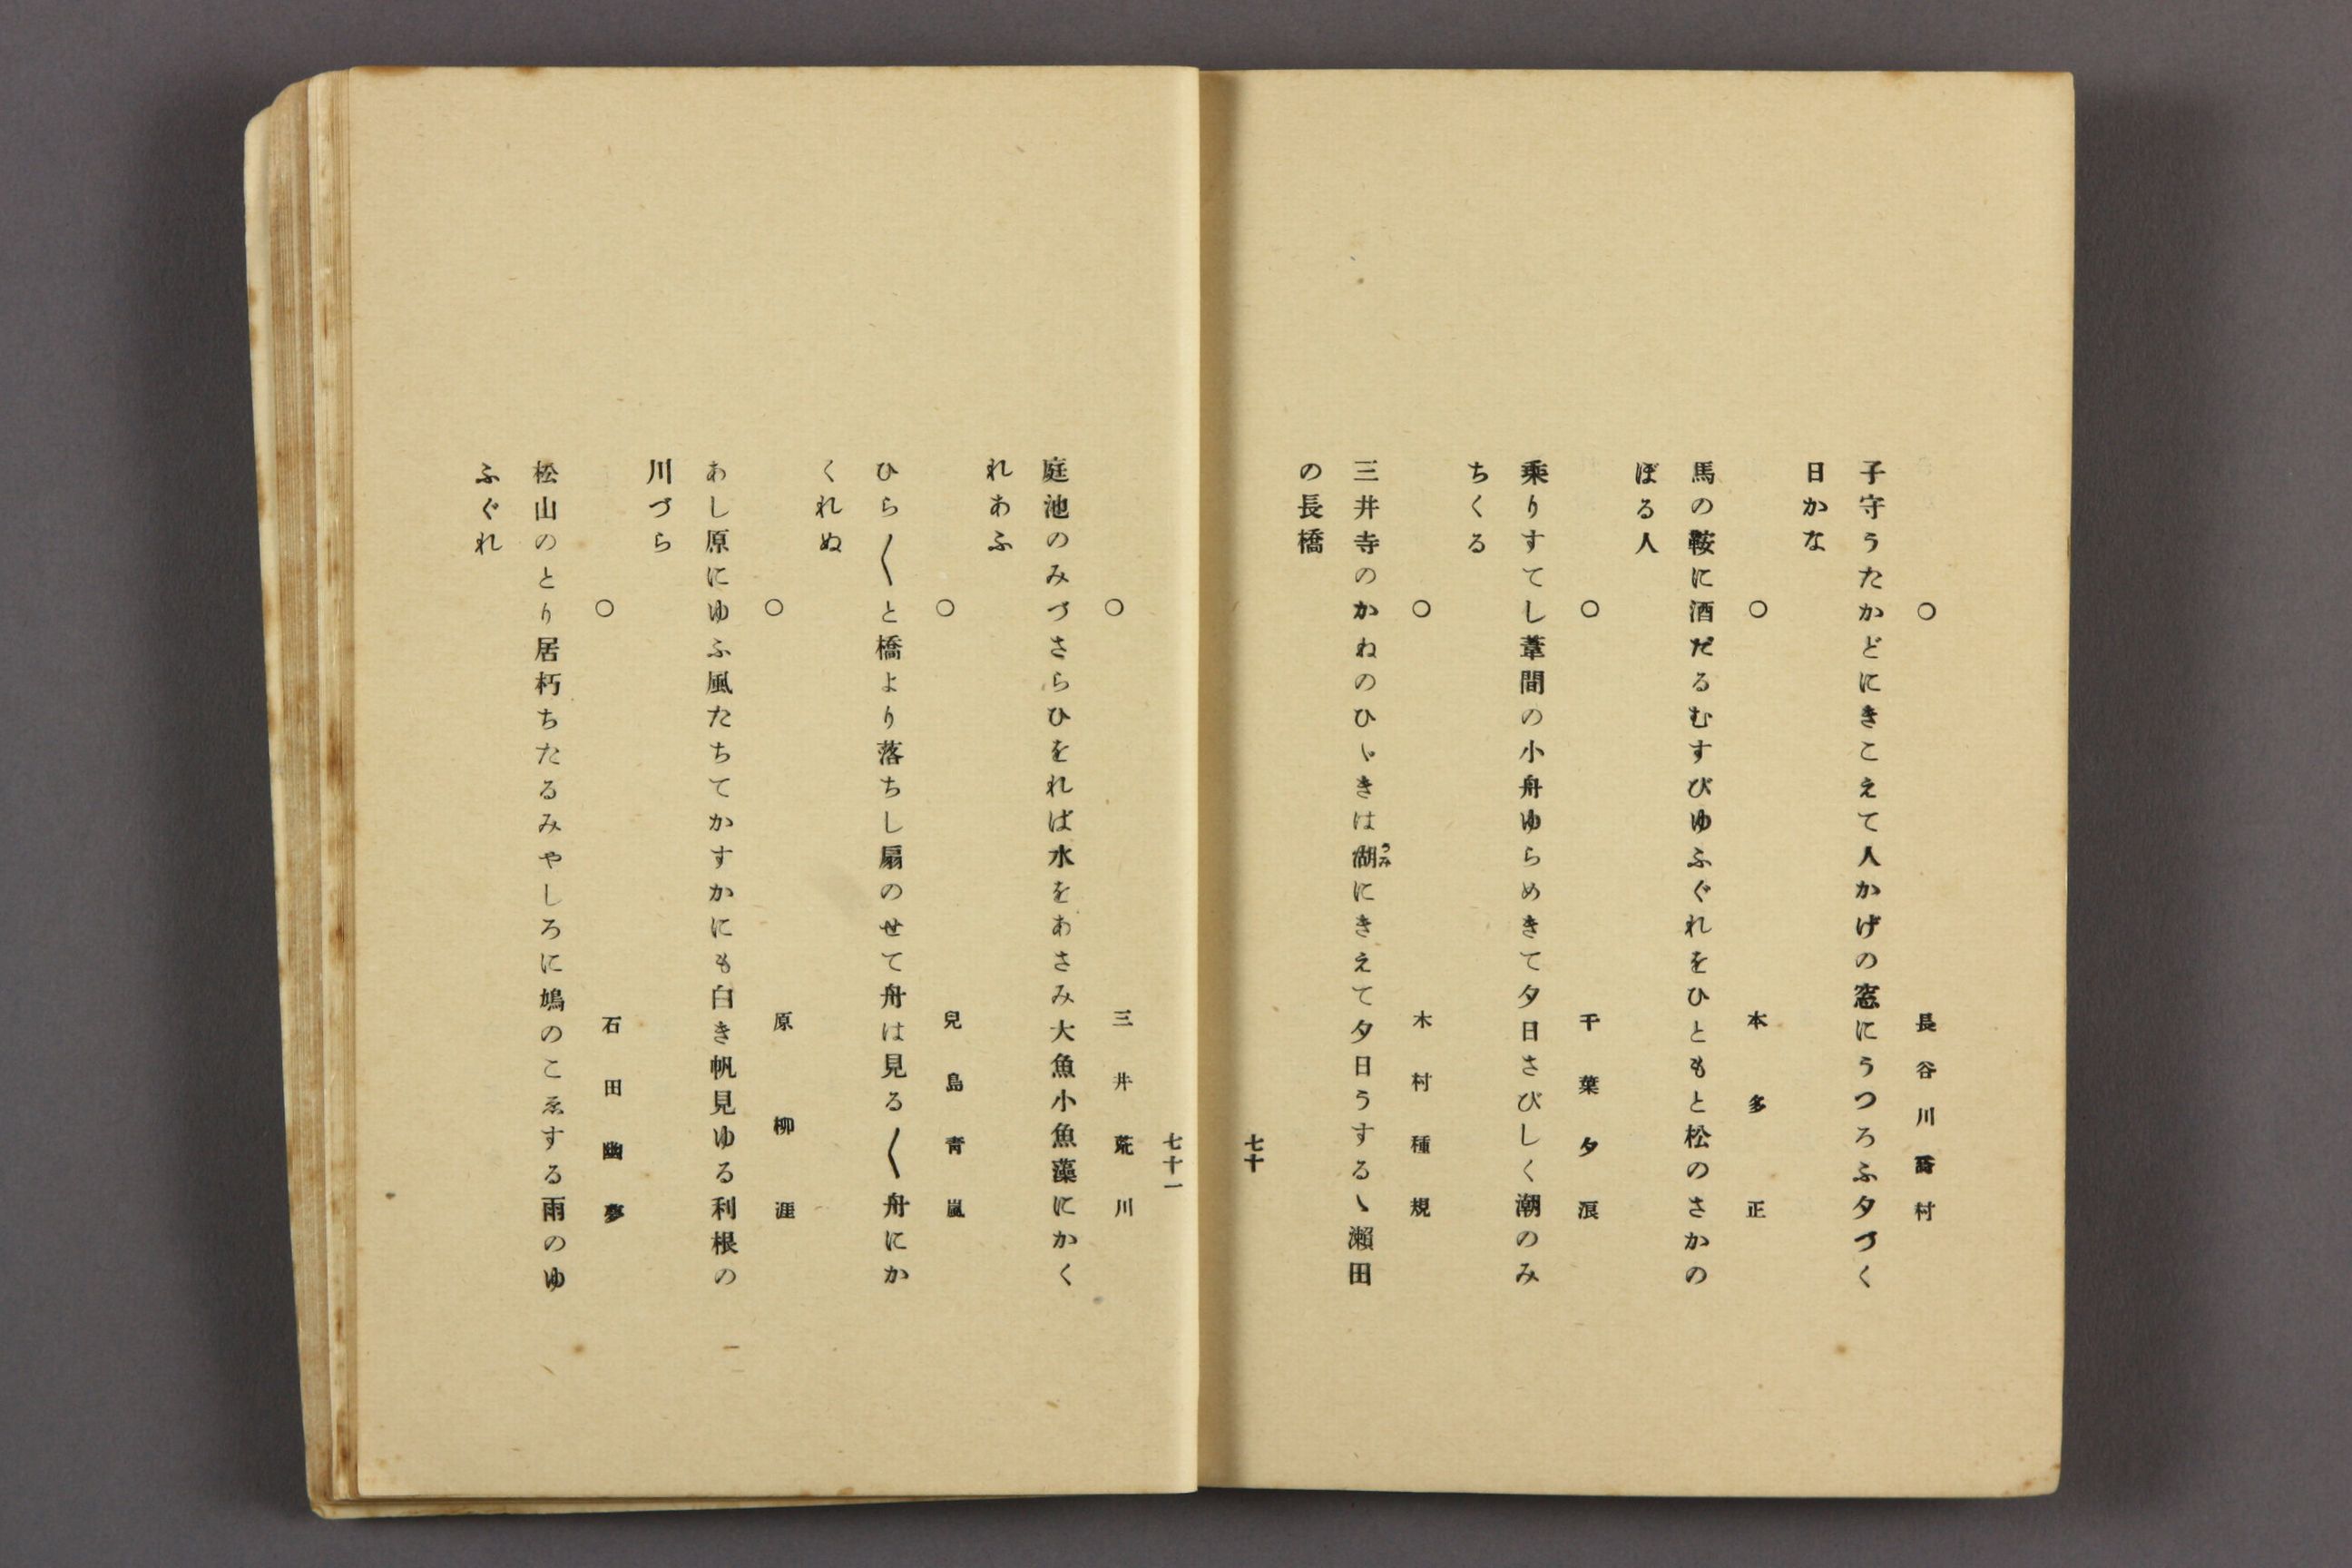 ○　長谷川村
子守うたかどにきこえて人かげの窓にうつろふ夕づく
日かな
○　本多正
馬の鞍に酒だるむすびゆふぐれをひともと松のさかの
ぼる人
○　千葉夕浪
乘りすてし葦間の小舟ゆらめきて夕日さびしく潮のみ
ちくる
○　木村種規
三井寺のかねのひゞきは湖にきえて夕日うするゝ瀨田
うみ
の長橋
七十
七十一
○　三井荒川
庭池のみづさらひをれば水をあさみ大魚小魚藻にかく
れあふ
○　兒島靑嵐
ひら〱と橋より落ちし扇のせて舟は見る〱舟にか
くれぬ
○　原柳涯
あし原にゆふ風たちてかすかにも白き帆見ゆる利根の
川づら
○　石田幽夢
松山のとり居朽ちたるみやしろに鳩のこゑする雨のゆ
ふぐれ